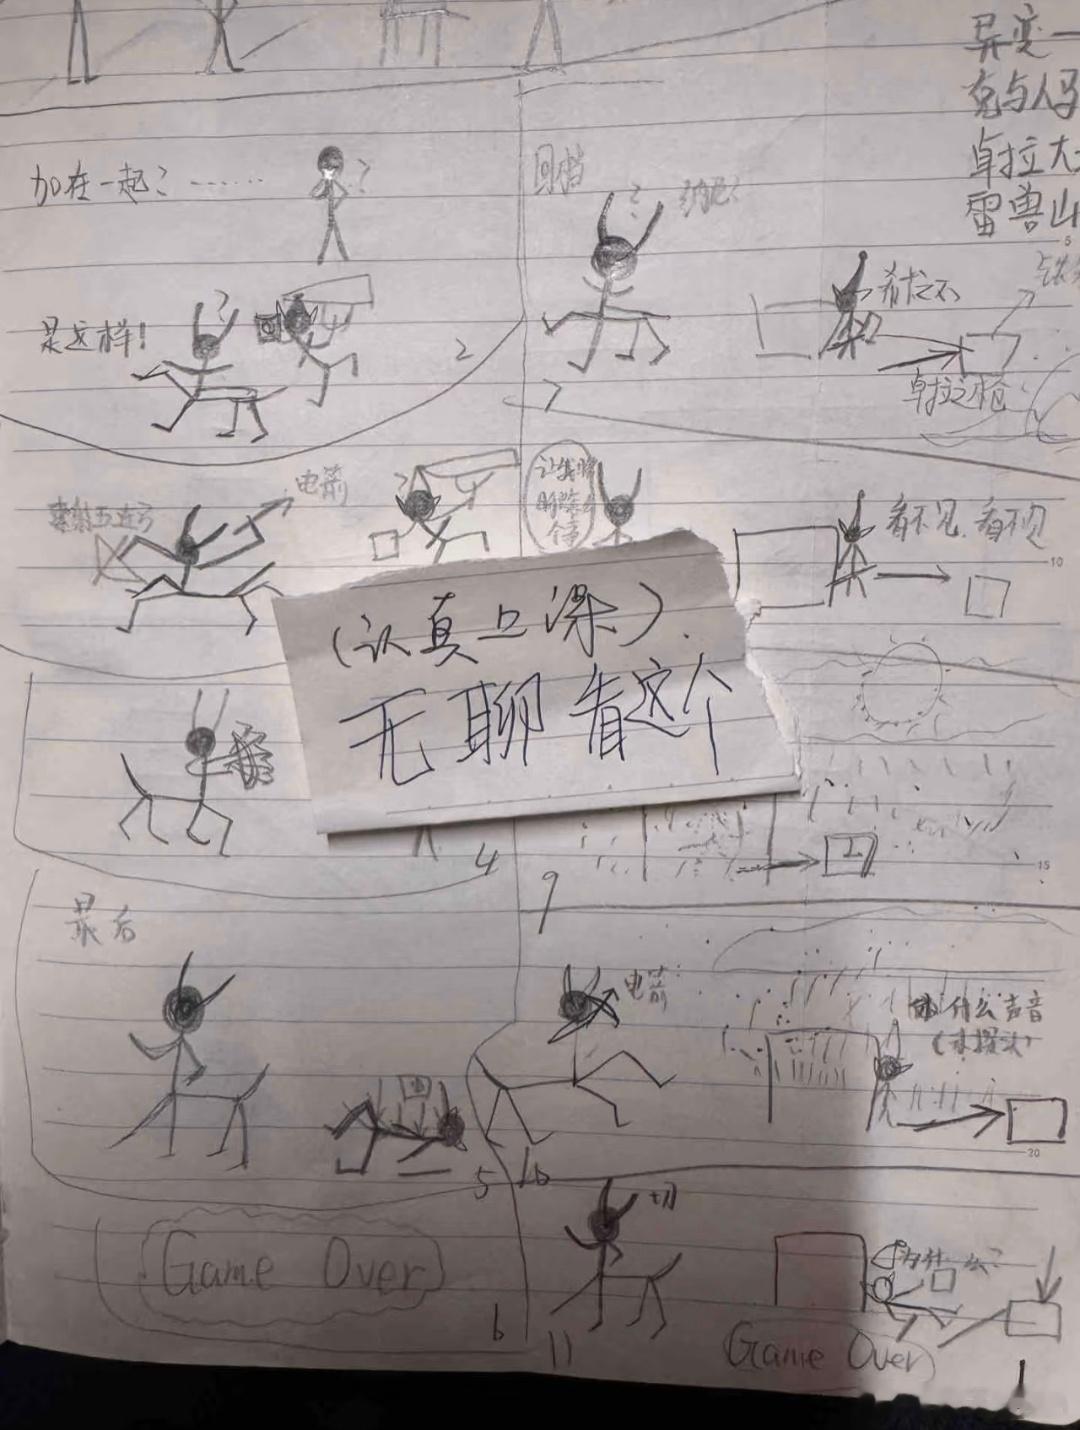 异变一
克与人马
卓拉大
雷兽山
加在一起？……
？
是这样！
？
2
回档
？
纳尼？
希尤之不
卓拉之枪
7
素射五连弓
电箭
？
看不见，看不见
(认真上课).
无聊看这个
4
9
最后
5
电箭
什么声音
10
Game Over
6
切
为什么？
11
Game Over
5
10
15
20